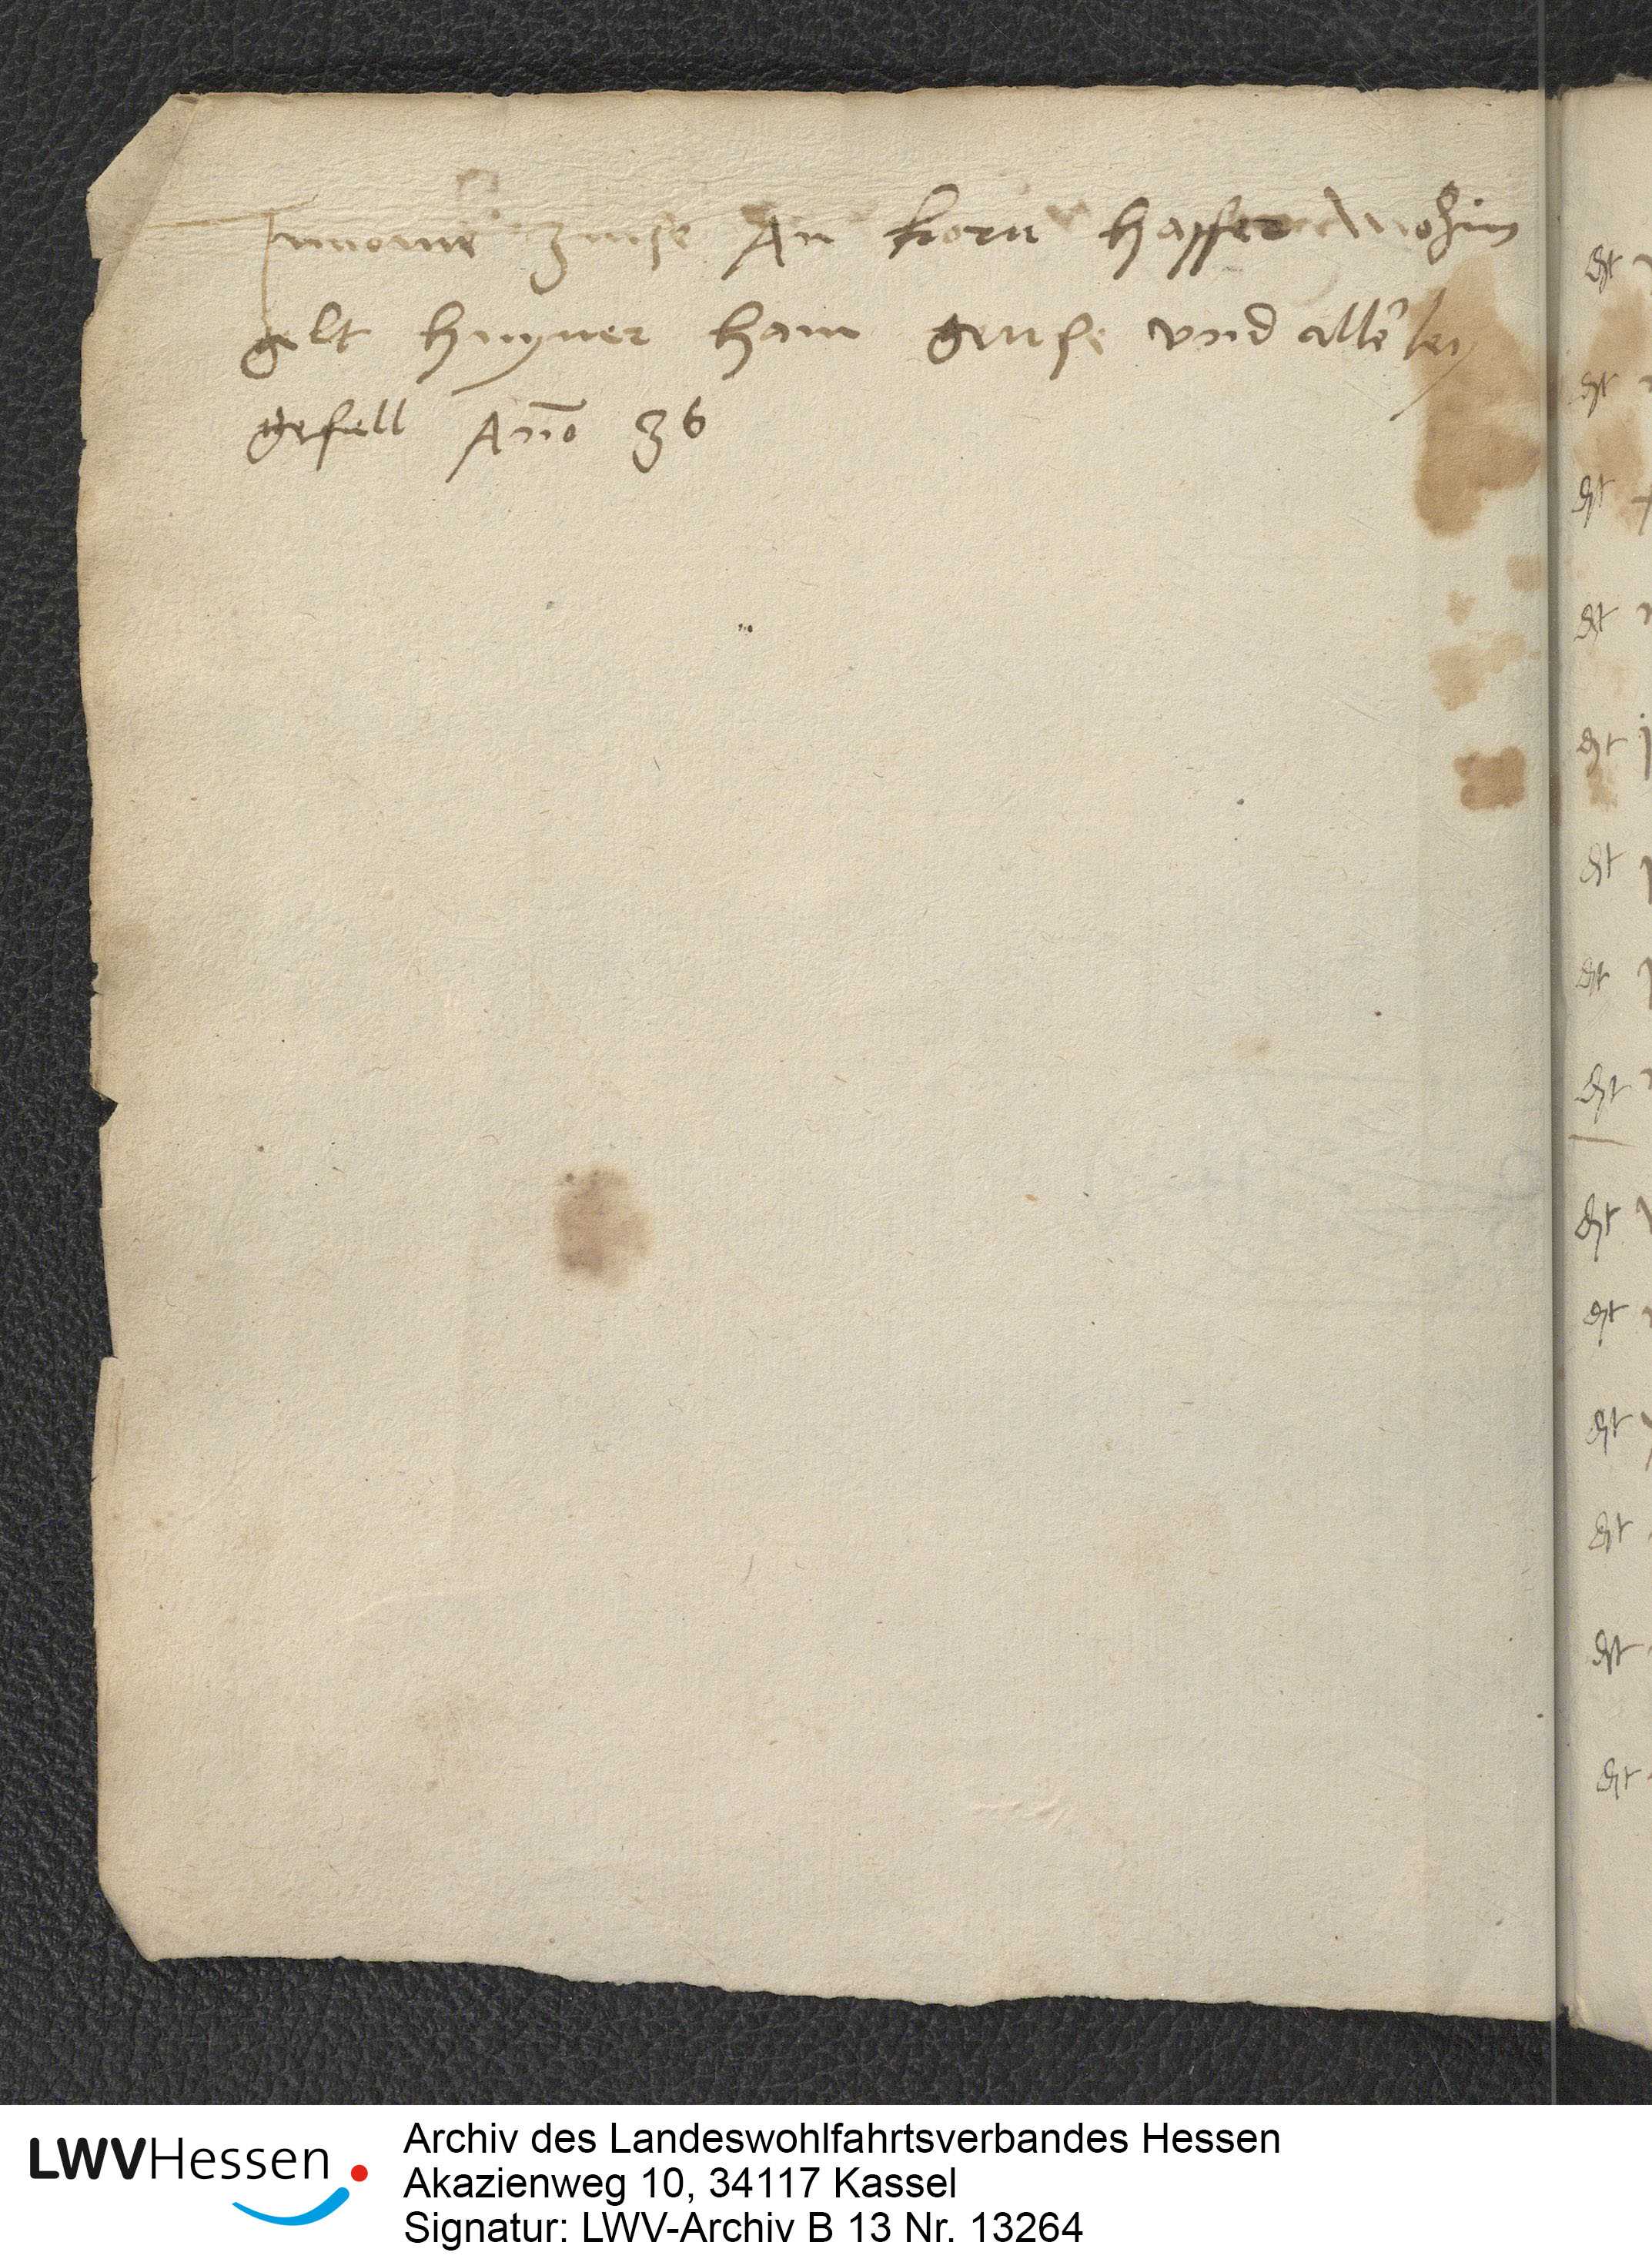 Innome zinse An korn haffer Mohin
gelt huyner han gense vnd allerley
gefell Anno 36
dt
dt
dt
dt
dt
dt
dt
dt
dt
dt
dt
dt
dt
dt
LWVHessen
Archiv des Landeswohlfahrtsverbandes Hessen
Akazienweg 10, 34117 Kassel
Signatur: LWV-Archiv B 13 Nr. 13264